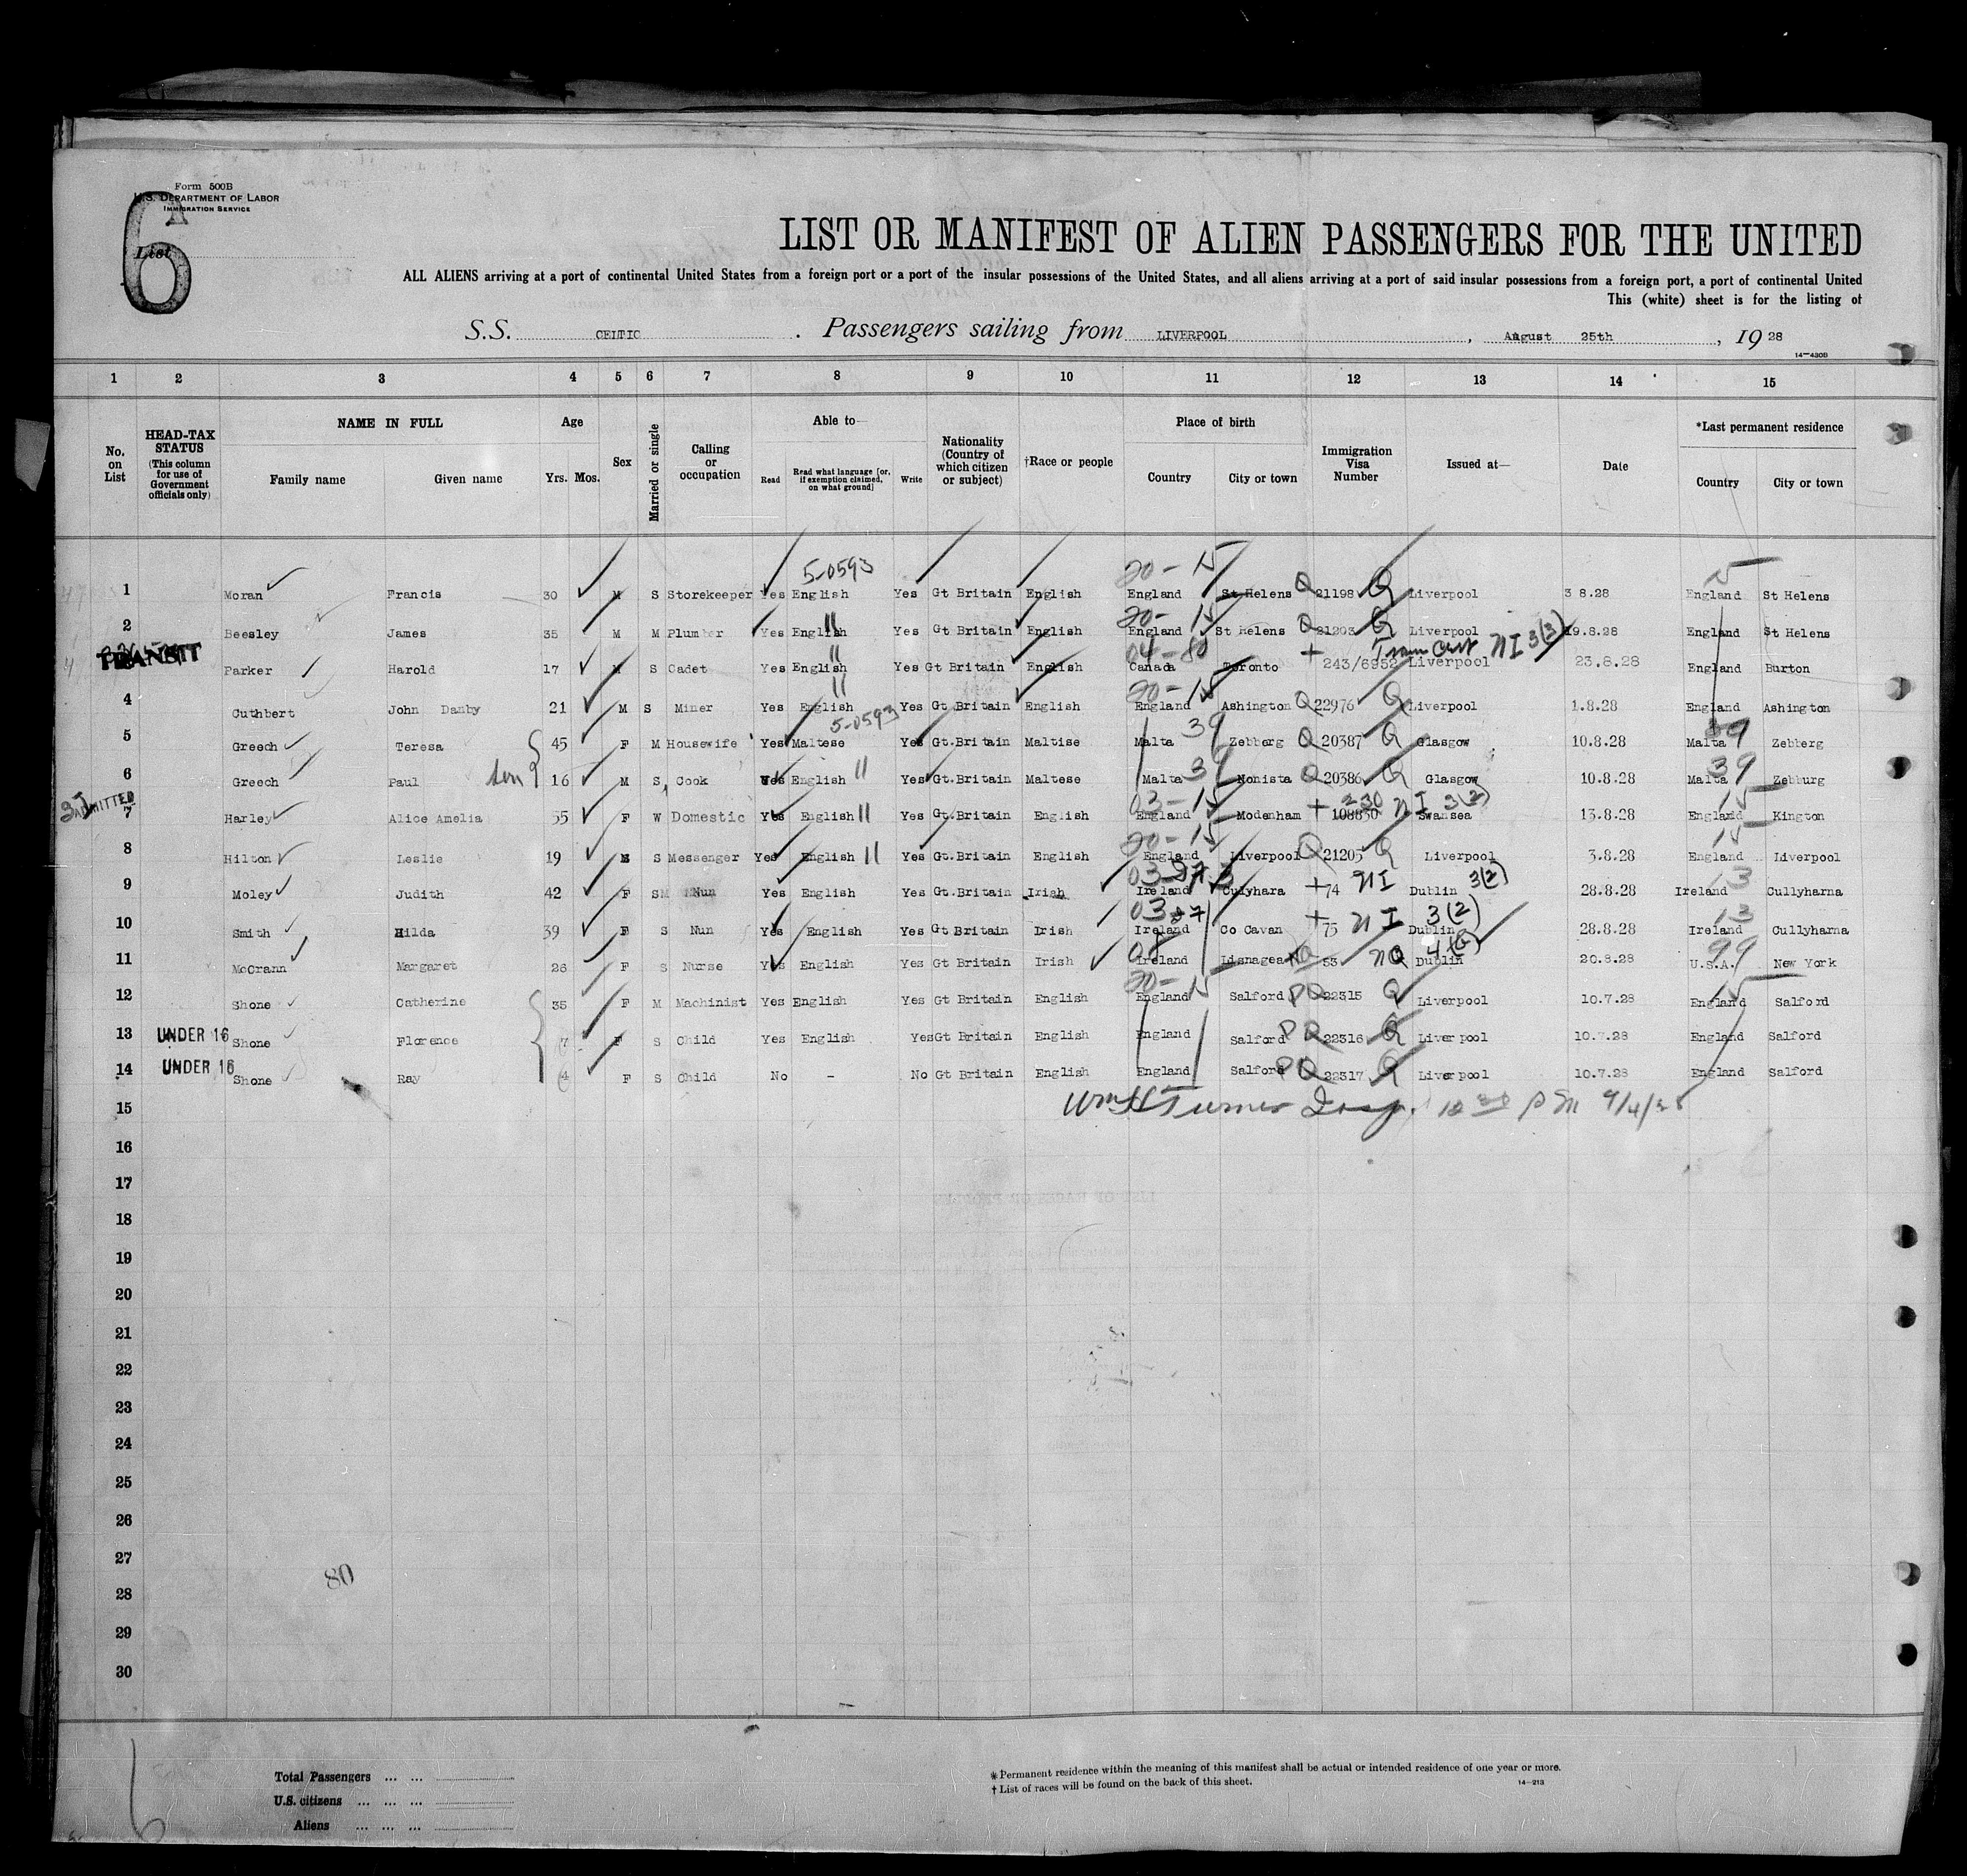 Form 500B
U.S. DEPARTMENT OF LABOR
IMMIGRATION SERVICE
List
6
A
LIST OR MANIFEST OF ALIEN PASSENGERS FOR THE UNITED
ALL ALIENS arriving at a port of continental United States from a foreign port or a port of the insular possessions of the United States, and all aliens arriving at a port of said insular possessions from a foreign port, a port of continental United
This (white) sheet is for the listing of
S.S. CELTIC. Passengers sailing from LIVERPOOL, August 25th, 19 28
14—430B
1 2 3 4 5 6 7 8 9 10 11 12 13 14 15
No. on List HEAD-TAX STATUS (This column for use of Government officials only) NAME IN FULL Family name Given name Age Yrs. Mos. Sex Married or single Calling or occupation Able to— Read Read what language [or, if exemption claimed, on what ground] Write Nationality (Country of which citizen or subject) †Race or people Place of birth Country City or town Immigration Visa Number Issued at— Date *Last permanent residence Country City or town
5-0593 20 - 15 15
1 Moran Francis 30 M S Storekeeper Yes English Yes Gt Britain English England St Helens Q 21198 Q Liverpool 3 8.28 England St Helens
20- 15
2 Beesley James 35 M M Plumber Yes English Yes Gt Britain English England St Helens Q 21203 Q Liverpool 19.8.28 England St Helens
04 - 80 Tran Cert NI 3(3)
TRANSIT Parker Harold 17 M S Cadet Yes English Yes Gt Britain English Canada Toronto + 243/6952 Liverpool 23.8.28 England Burton
20-15
4 Cuthbert John Danby 21 M S Miner Yes English Yes Gt Britain English England Ashington Q 22976 Q Liverpool 1.8.28 England Ashington
5-0593 39 39
5 Greech Teresa 45 F M Housewife Yes Maltese Yes Gt.Britain Maltise Malta Zebberg Q 20387 Q Glasgow 10.8.28 Malta Zebberg
39 39
6 Greech Paul son 16 M S, Cook Yes English Yes Gt.Britain Maltese Malta Nonista Q 20386 Q Glasgow 10.8.28 Malta Zebburg
ADMITTED 03-15 230 NI 3(2) 15
7 Harley Alice Amelia 55 F W Domestic Yes English Yes Gt.Britain English England Modenham + 108830 Swansea 13.8.28 England Kington
20-15 15
8 Hilton Leslie 19 M S Messenger Yes English Yes Gt.Britain English England Liverpool Q 21205 Q Liverpool 3.8.28 England Liverpool
03 NI 3(2) 13
9 Moley Judith 42 F S Nun Yes English Yes Gt.Britain Irish Ireland Culyhara + 74 Dublin 28.8.28 Ireland Cullyharna
03 NI 3(2) 13
10 Smith Hilda 39 F S Nun Yes English Yes Gt Britain Irish Ireland Co Cavan + 75 Dublin 28.8.28 Ireland Cullyharna
NQ 4(6) 99
11 McCrann Margaret 26 F S Nurse Yes English Yes Gt Britain Irish Ireland Lisnagea NQ 53 Dublin 20.8.28 U.S.A. New York
20-15 15
12 Shone Catherine 35 F M Machinist Yes English Yes Gt Britain English England Salford PQ 22315 Q Liverpool 10.7.28 England Salford
13 UNDER 16 Shone Florence 7 F S Child Yes English Yes Gt Britain English England Salford PQ 22316 Q Liverpool 10.7.28 England Salford
14 UNDER 16 Shone Ray 4 F S Child No - No Gt Britain English England Salford PQ 22317 Q Liverpool 10.7.28 England Salford
15 Wm H Turner Insp. 12 30 PM 9/4/28
16
17
18
19
20
21
22
23
24
25
26
27
80
28
29
30
Total Passengers ... ...
U.S. citizens ... ... ...
Aliens ... ... ...
* Permanent residence within the meaning of this manifest shall be actual or intended residence of one year or more.
† List of races will be found on the back of this sheet. 14—213
6